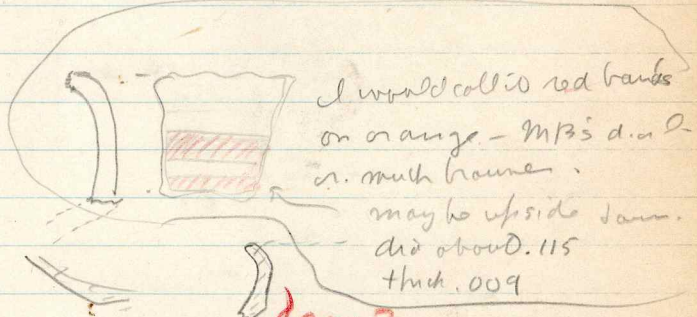 I would call it red bands
on orange - MB's d. on l-
or. much browner.
maybe upside down.
dia about 0.115
thick .009